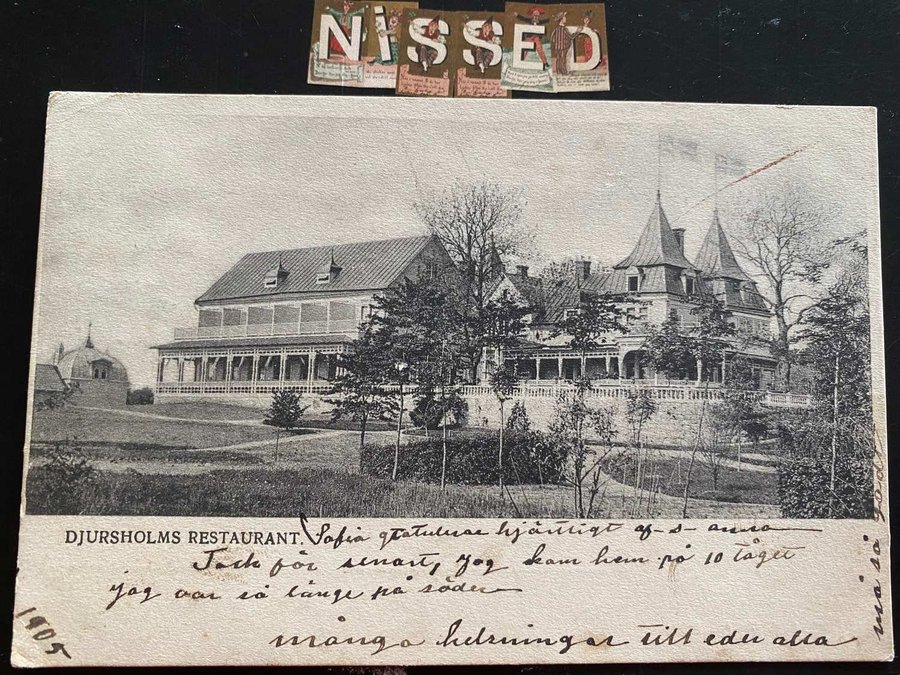 NiSSED
DJURSHOLMS RESTAURANT.
Sofia gratulerar hjärtligt af s anna
Tack för senast, Jag kom hem på 10 tåget
jag var så länge på söder
många helsningar till eder alla
må så godt
1905